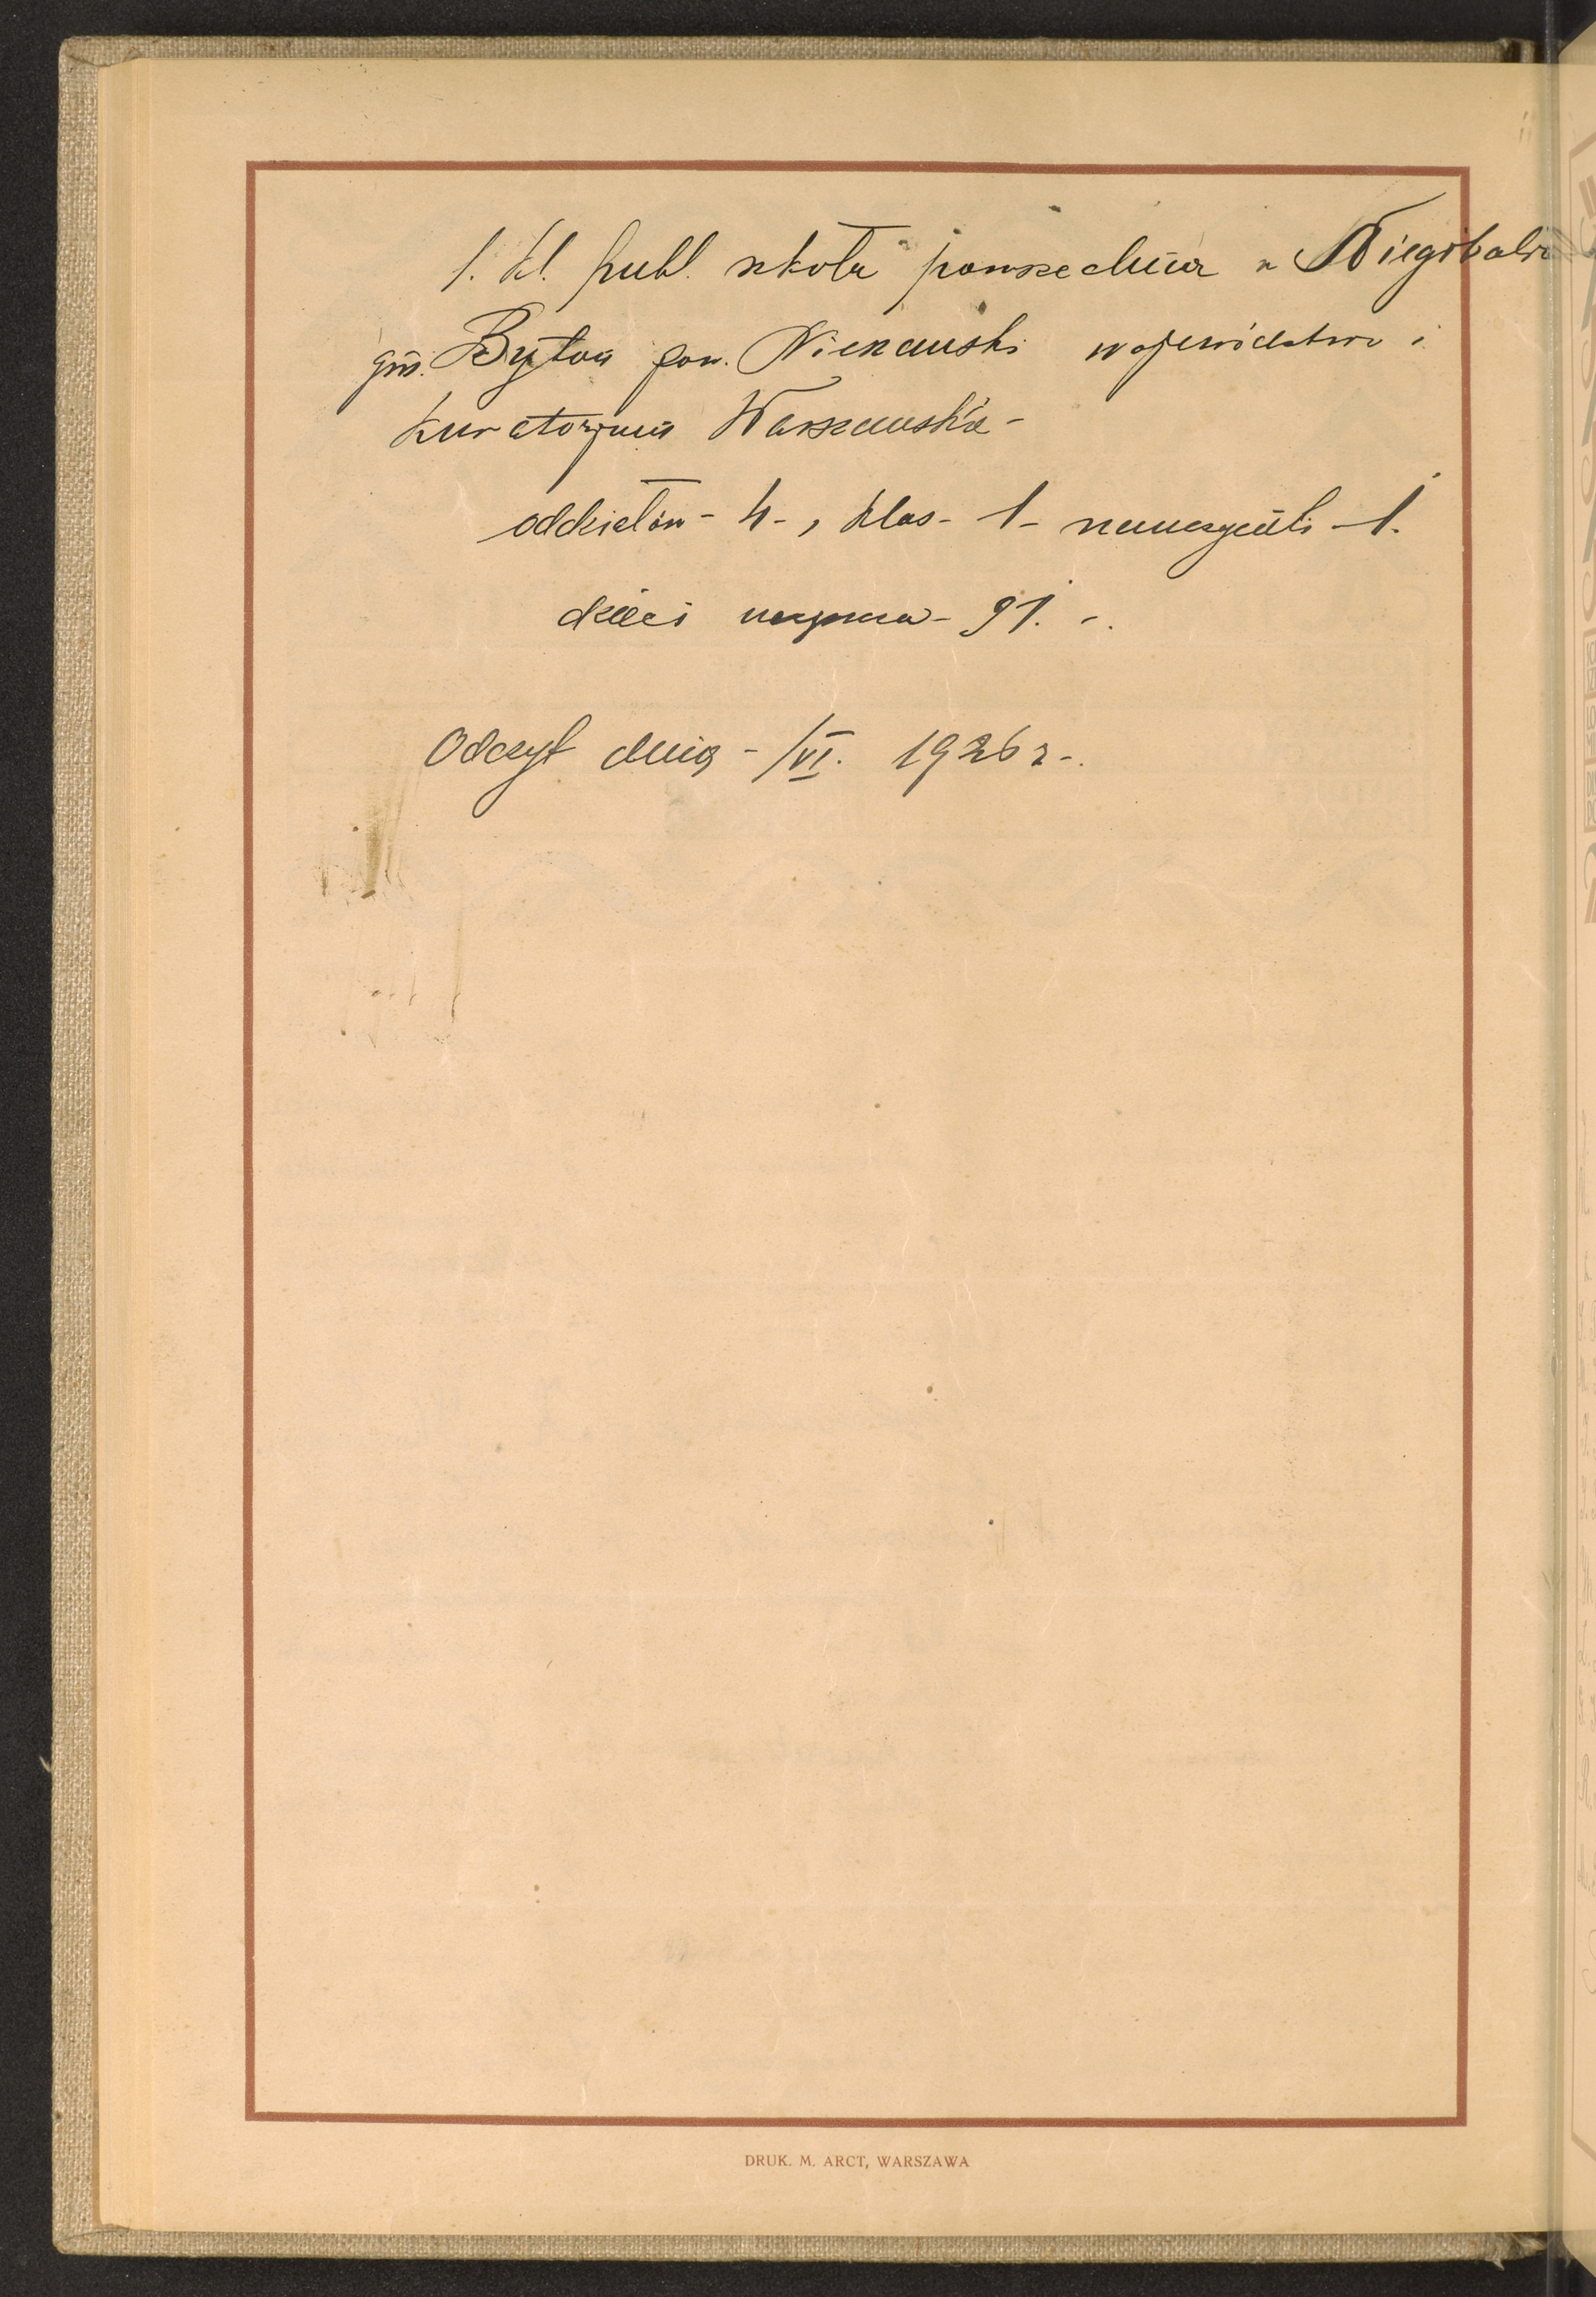 1. kl. publ. szkoła powszechna w Niegibalicach
gm. Bytoń pow. Nieszawski województwo i
Kuratorjum Warszawskie -
oddziałów - 4 -, klas - 1 - nauczycieli - 1.
dzieci uczęszcza - 91. -.
Odczyt dnia - /VI. 1926 r -.
DRUK. M. ARCT, WARSZAWA